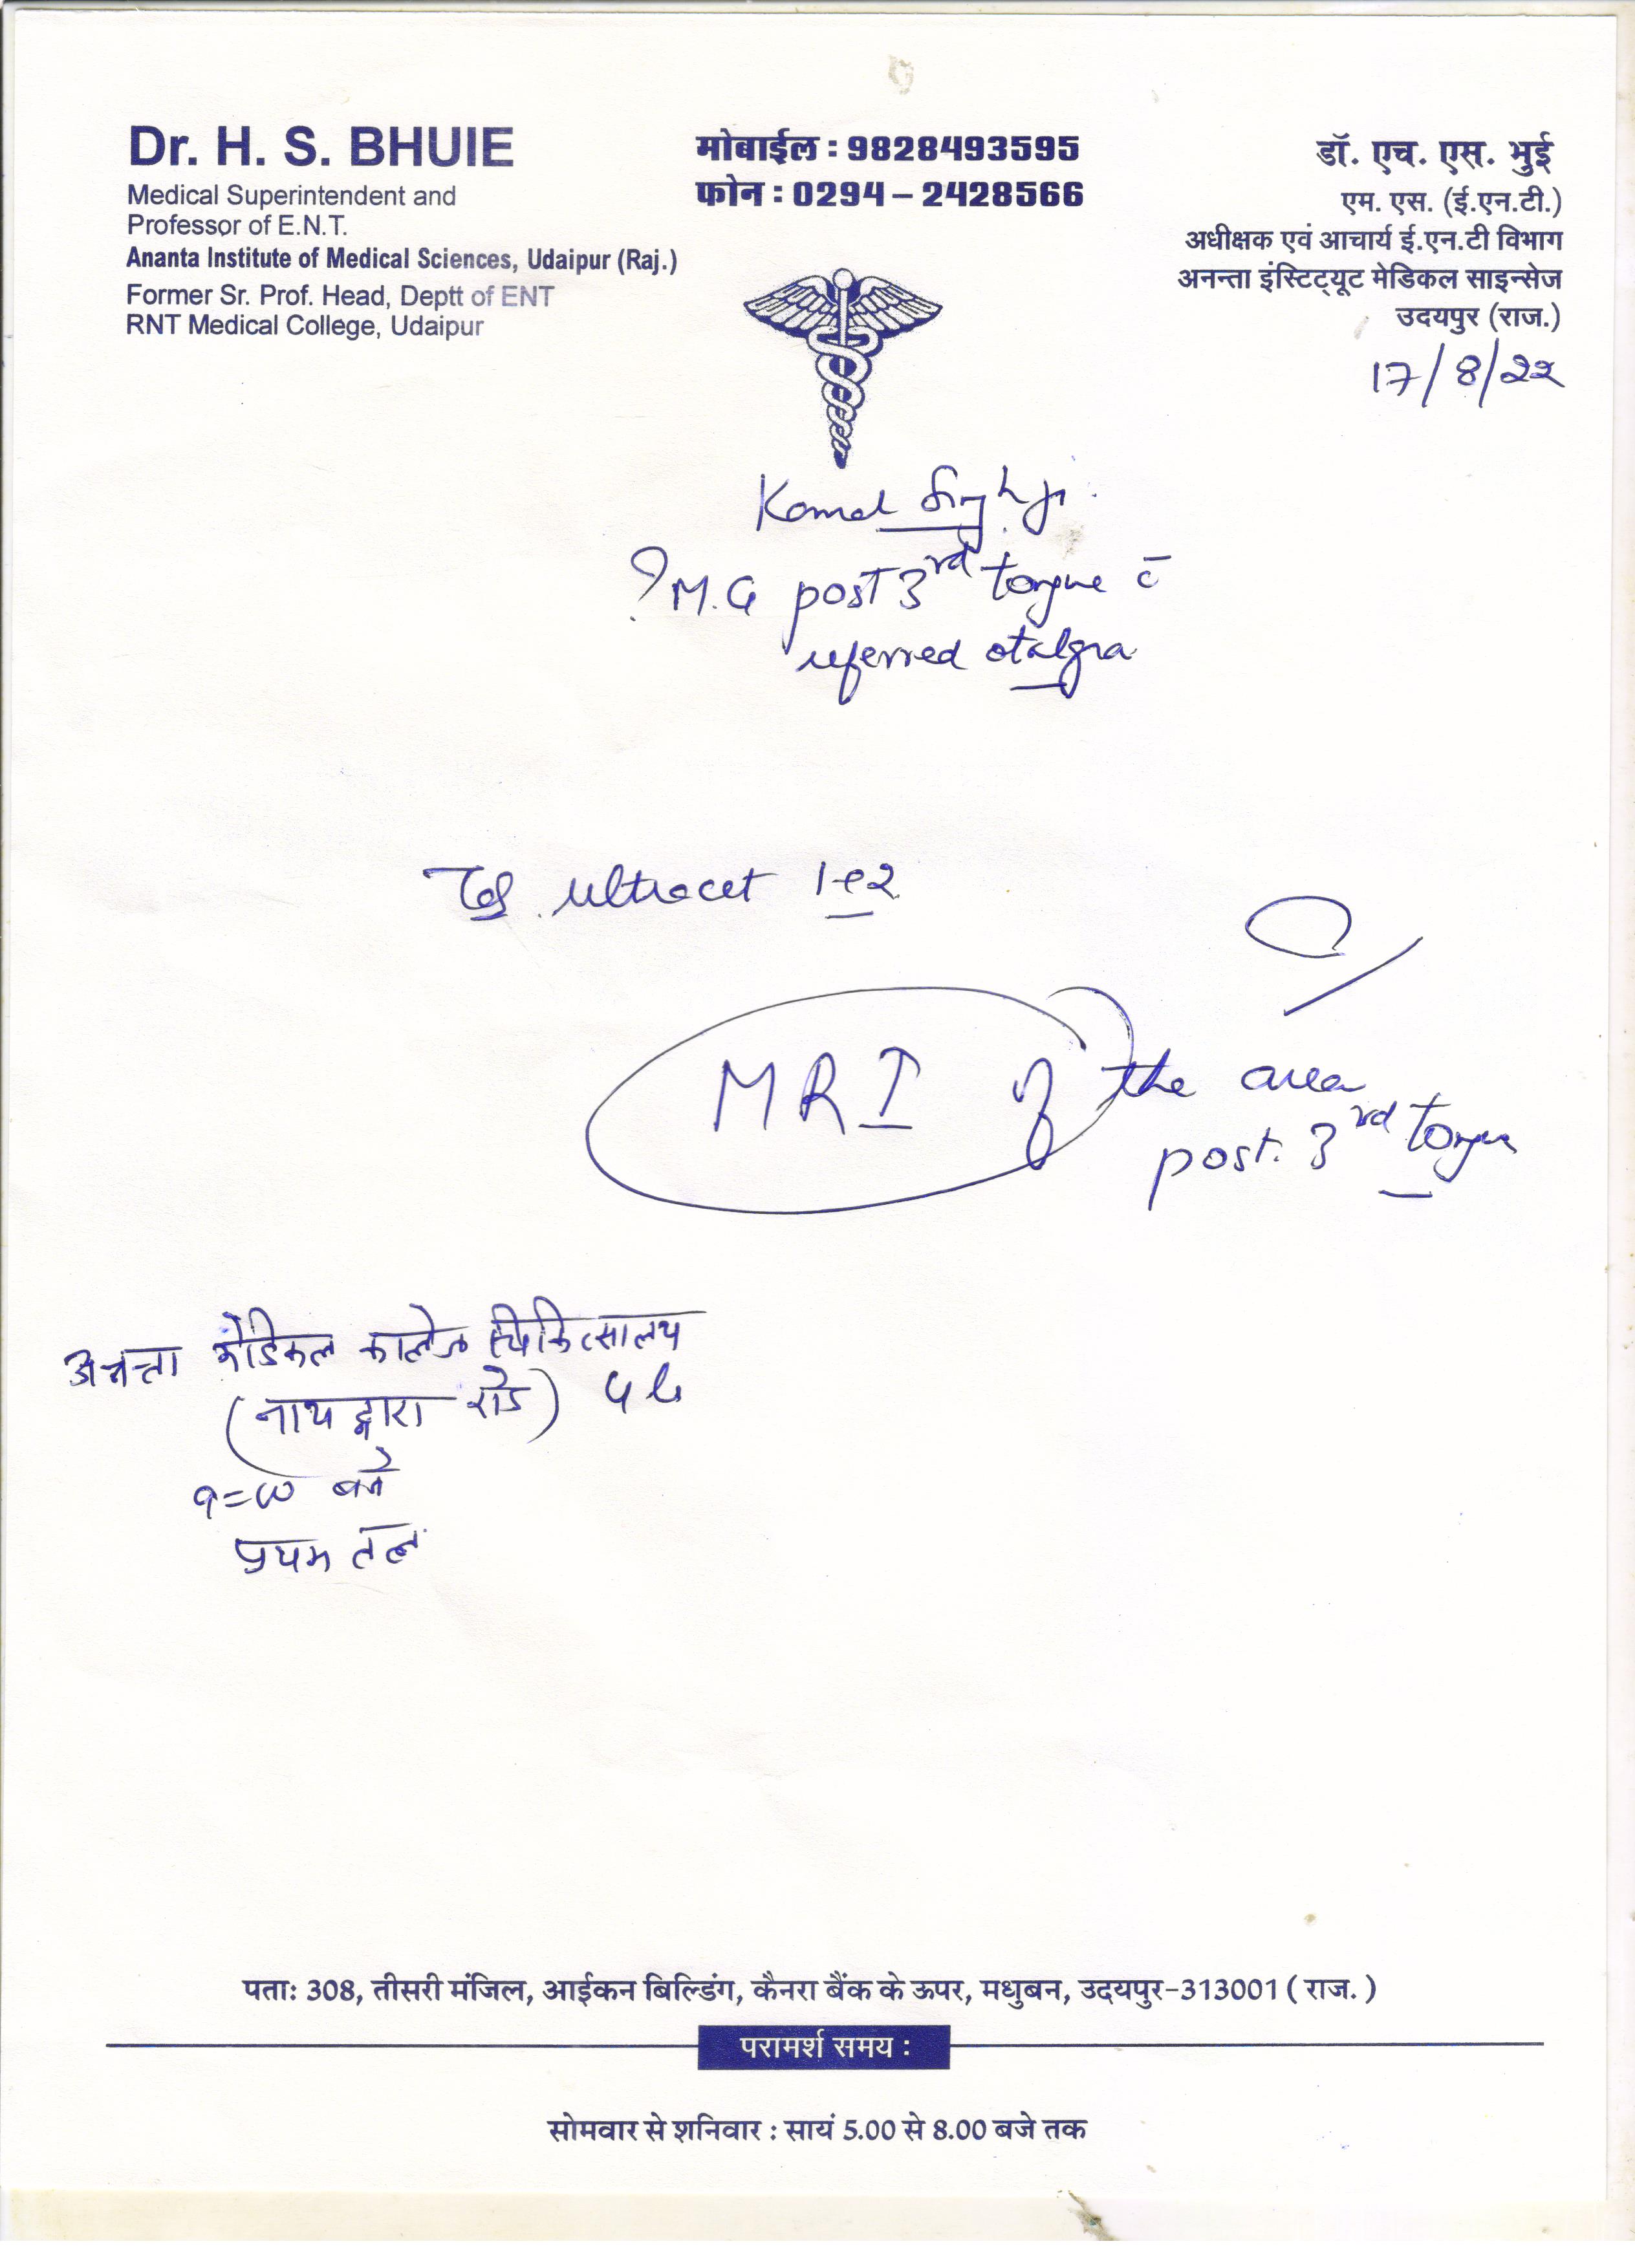 Dr. H. S. BHUIE
Medical Superintendent and
Professor of E.N.T.
Ananta Institute of Medical Sciences, Udaipur (Raj.)
Former Sr. Prof. Head, Deptt of ENT
RNT Medical College, Udaipur
मोबाईल : 9828493595
फोन : 0294 – 2428566
डॉ. एच. एस. भुई
एम. एस. (ई.एन.टी.)
अधीक्षक एवं आचार्य ई.एन.टी विभाग
अनन्ता इंस्टिट्यूट मेडिकल साइन्सेज
उदयपुर (राज.)
17/8/22
Komal Singh ji
? M.G post 3rd tongue c̄
referred otalgia
Tab ultracet
MRI of the area
post. 3rd tongue
अनन्ता मेडिकल कालेज चिकित्सालय
(नाथद्वारा रोड)
बजे
प्रथम तल
पताः 308, तीसरी मंजिल, आईकन बिल्डिंग, कैनरा बैंक के ऊपर, मधुबन, उदयपुर-313001 ( राज. )
परामर्श समय :
सोमवार से शनिवार : सायं 5.00 से 8.00 बजे तक